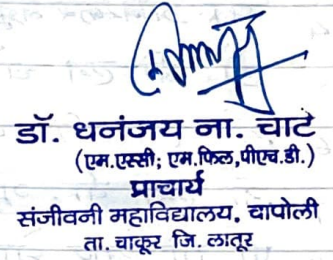 डॉ. धनंजय ना. चाटे
(एम.एस्सी; एम.फिल,पीएच.डी.)
प्राचार्य
संजीवनी महाविद्यालय, चापोली
ता. चाकूर जि. लातूर